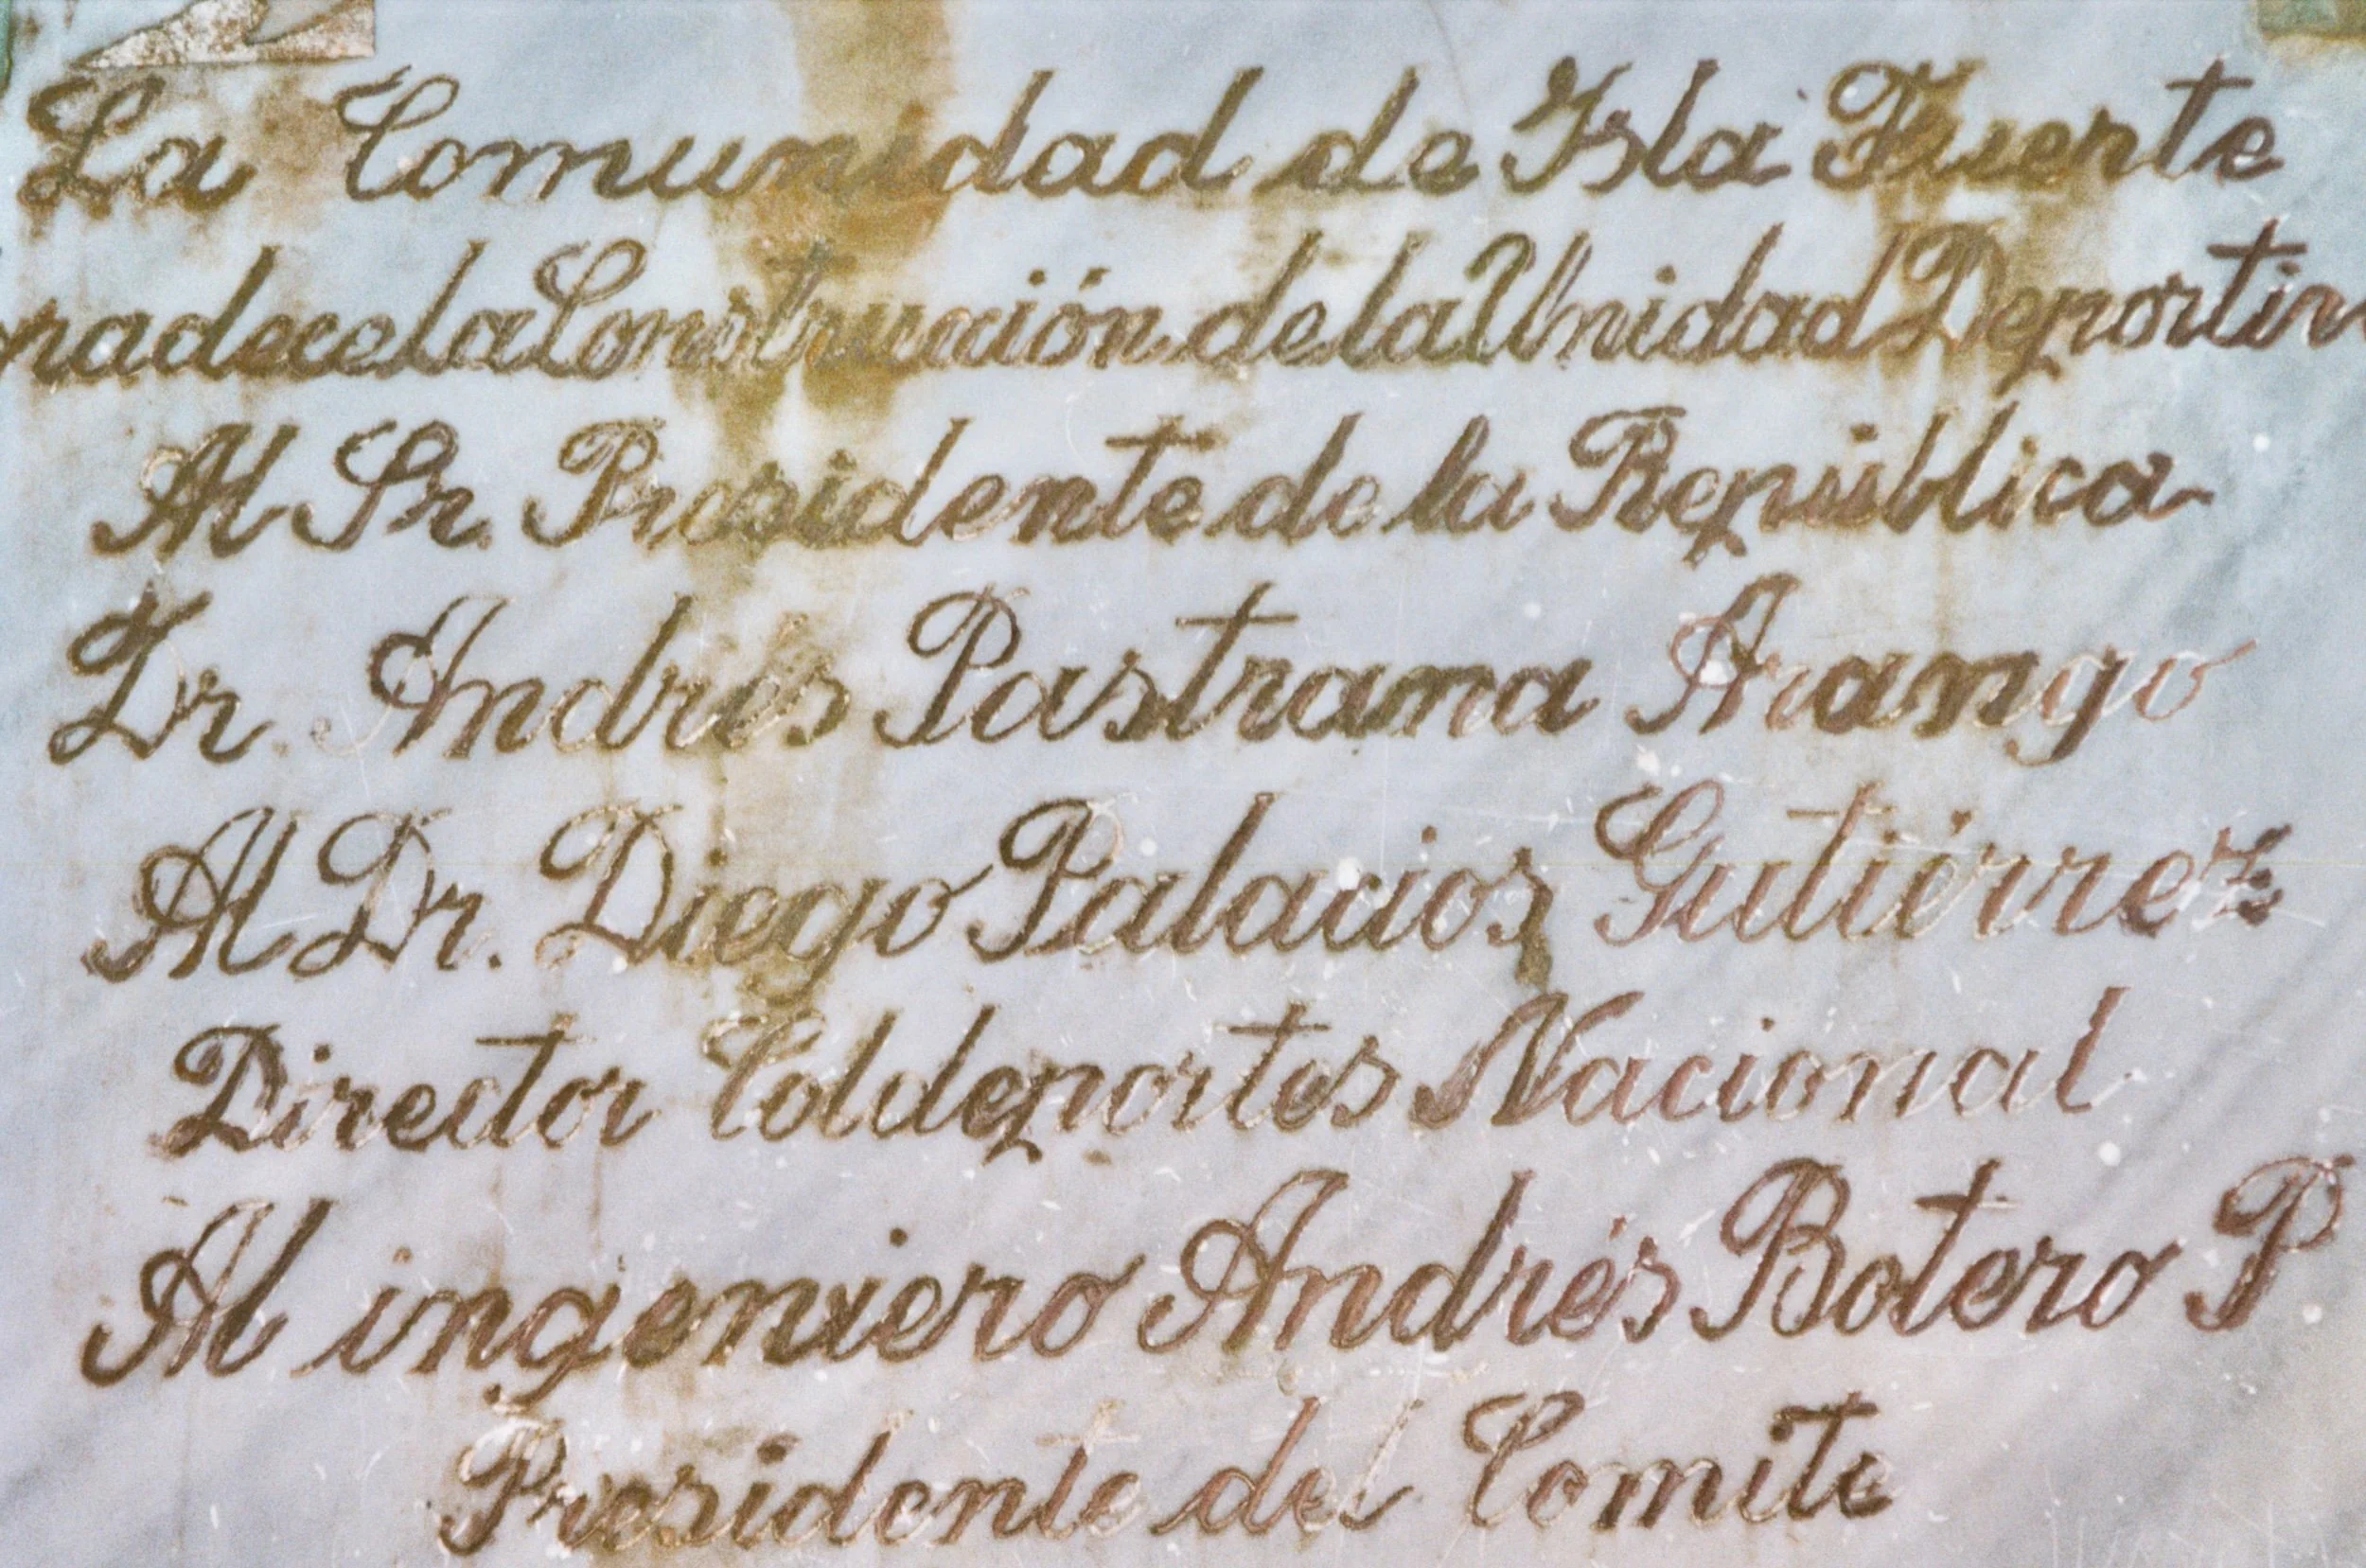 La Comunidad de Isla Fuerte
radece la Construcción de la Unidad Deportiv
Al Sr. Presidente de la República
Dr. Andrés Pastrana Arango
Al Dr. Diego Palacios Gutiérrez
Director Coldeportes Nacional
Al ingeniero Andrés Botero P
Presidente del Comite